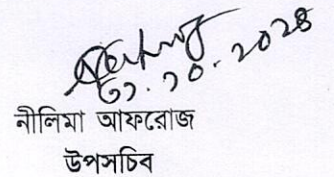 ০১.১০.২০২৪
নীলিমা আফরোজ
উপসচিব